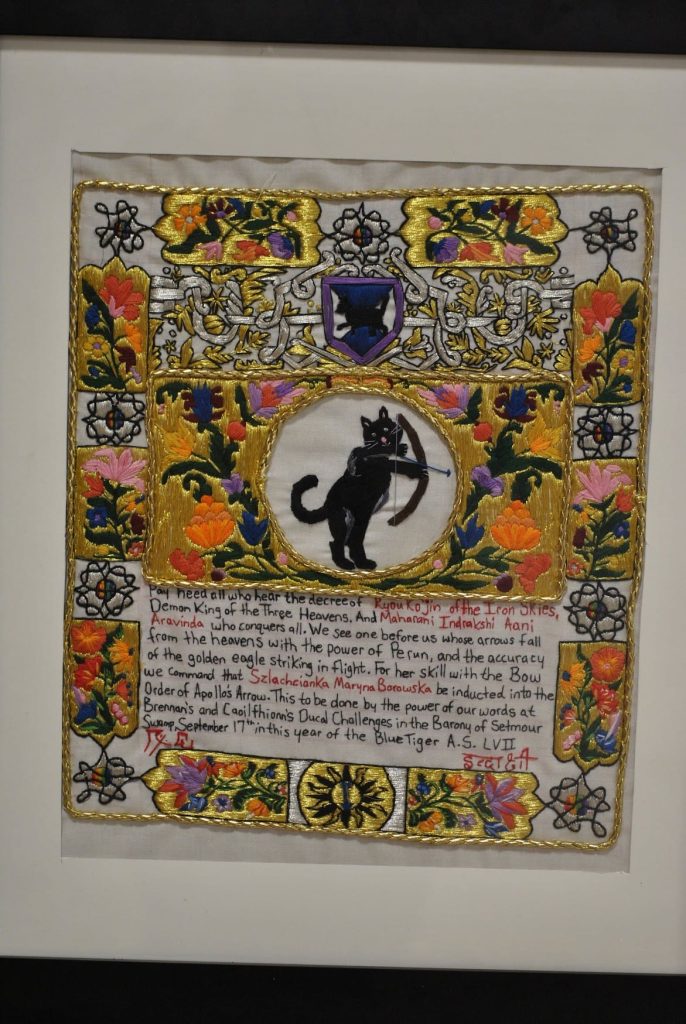 Pay heed all who hear the decree of Ryou Kojin of the Iron Skies,
Demon King of the Three Heavens. And Maharani Indrakshi Aani
Aravinda who conquers all. We see one before us whose arrows fall
from the heavens with the power of Perun, and the accuracy
of the golden eagle striking in flight. For her skill with the Bow
we command that Szlachcianka Maryna Borowska be inducted into the
Order of Apollo's Arrow. This to be done by the power of our words at
Brennan's and Caoilfhionn's Ducal Challenges in the Barony of Setmour
Swamp, September 17th in this year of the Blue Tiger A.S. LVII